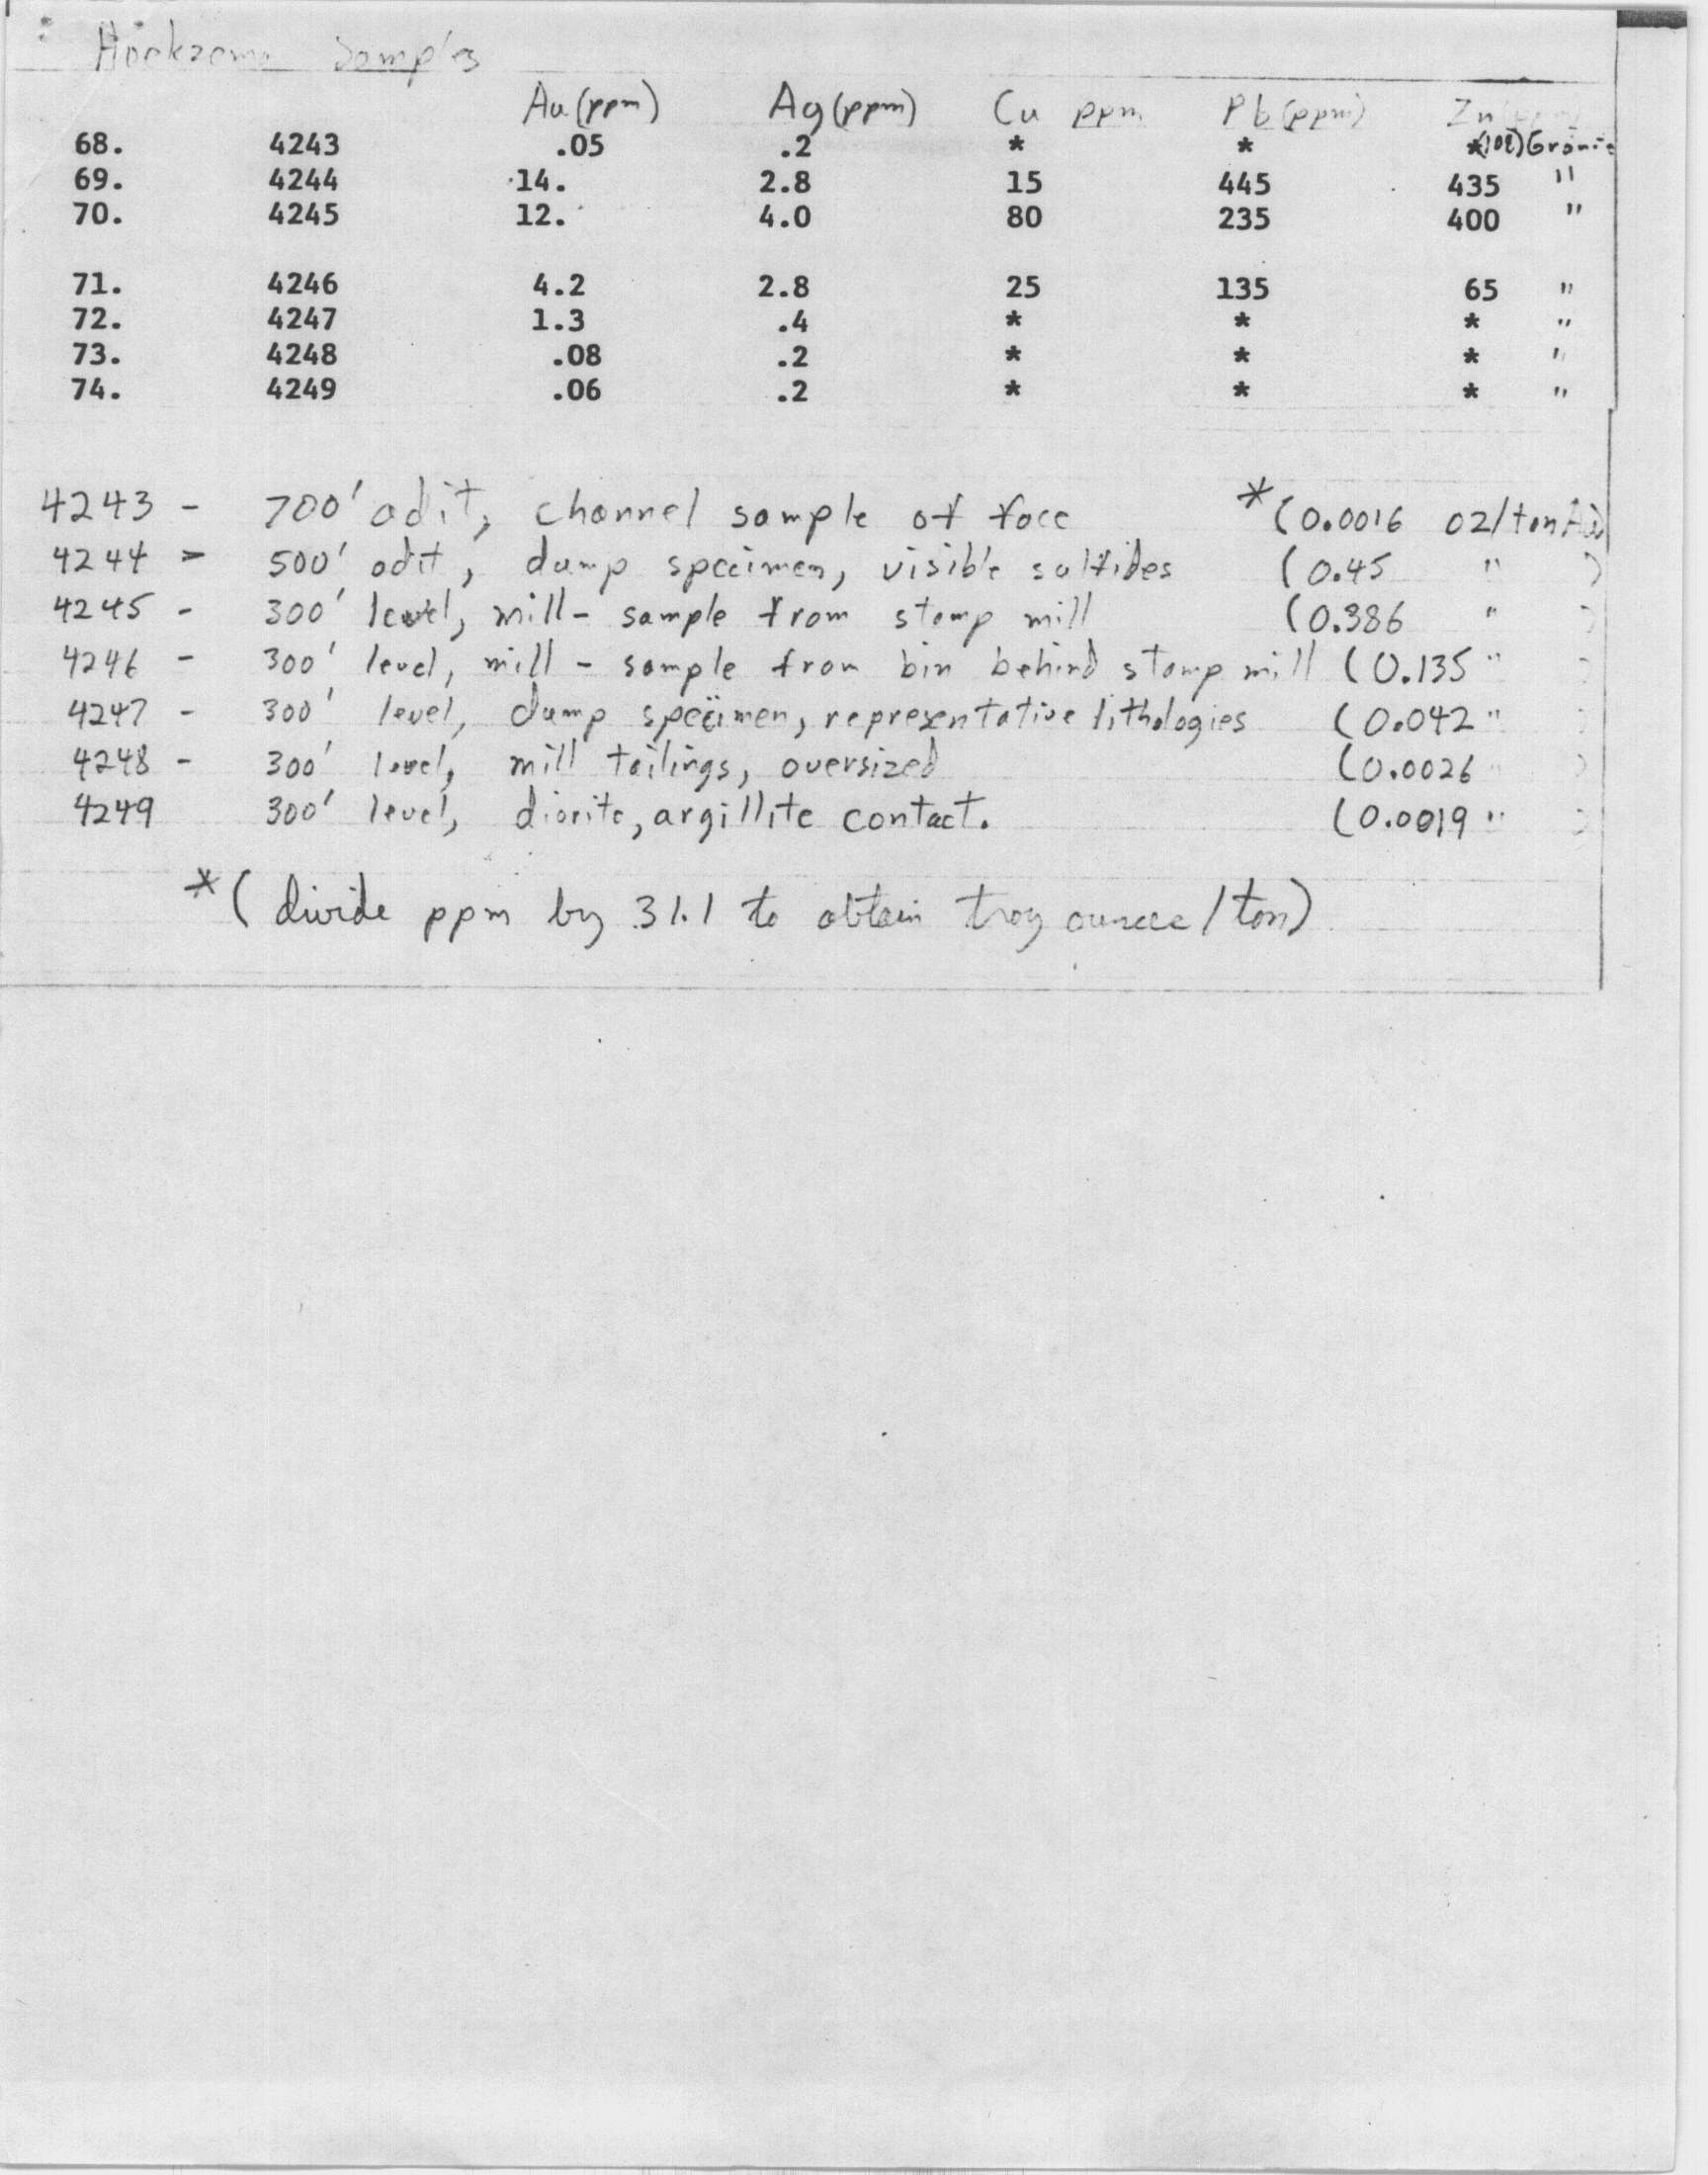 Samples
Au (ppm) Ag (ppm) Cu ppm Pb (ppm) Zn
68. 4243 .05 .2 * * *
69. 4244 14. 2.8 15 445 435 "
70. 4245 12. 4.0 80 235 400 "
71. 4246 4.2 2.8 25 135 65 "
72. 4247 1.3 .4 * * * "
73. 4248 .08 .2 * * * "
74. 4249 .06 .2 * * * "
4243 - 700' adit, channel sample of face *(0.0016 oz/ton Au)
4244 - 500' adit, dump specimen, visible sulfides (0.45 " )
4245 - 300' level, mill - sample from stamp mill (0.386 " )
4246 - 300' level, mill - sample from bin behind stamp mill (0.135 " )
4247 - 300' level, dump specimen, representative lithologies (0.042 " )
4248 - 300' level, mill tailings, oversized (0.0026 " )
4249 300' level, diorite, argillite contact. (0.0019 " )
*(divide ppm by 31.1 to obtain troy ounces/ton)